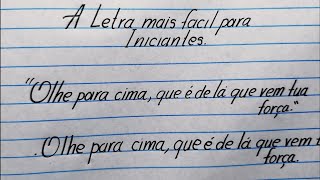 A Letra mais facil para
Iniciantes.
"Olhe para cima, que é de lá que vem tua
força."
.Olhe para cima, que é de lá que vem t
força.